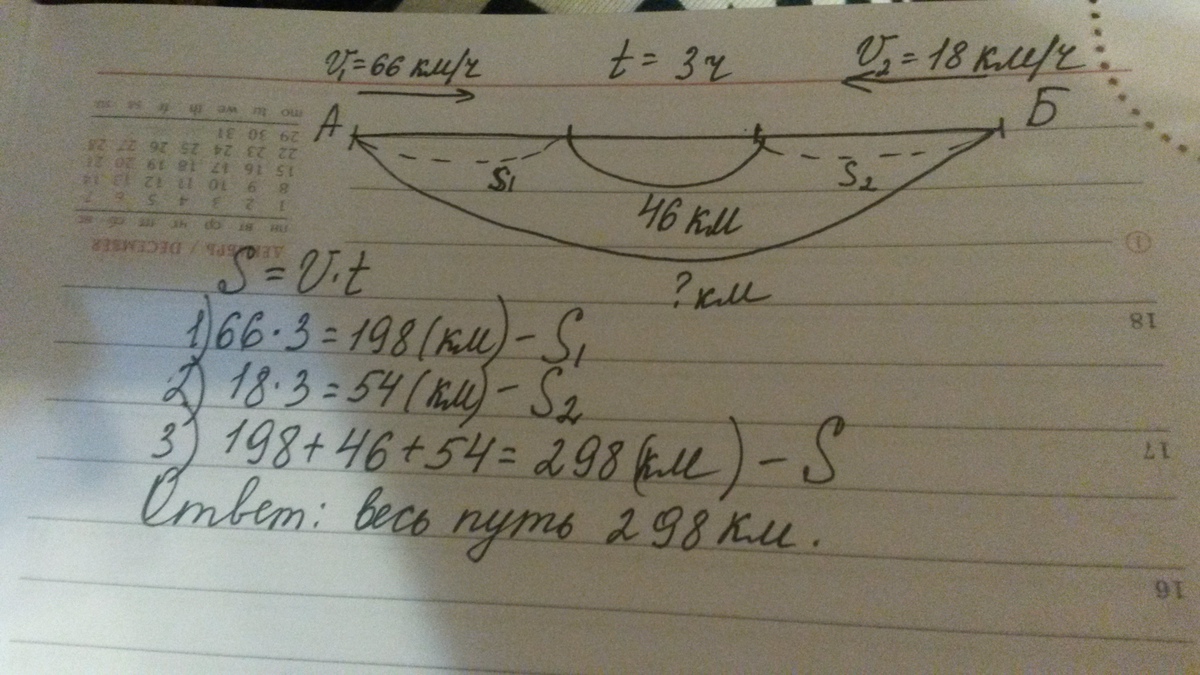 V₁=66 км/ч t = 3ч V₂=18 км/ч
А Б
S₁ 46 км S₂
? км
S = V·t
1) 66·3=198 (км) – S₁
2) 18·3=54 (км) – S₂
3) 198+46+54=298 (км) – S
Ответ: весь путь 298 км.
ДЕКАБРЬ / DECEMBER
пн вт ср чт пт сб вс
1 2 3 4 5 6 7
8 9 10 11 12 13 14
15 16 17 18 19 20 21
22 23 24 25 26 27 28
29 30 31
mo tu we th fr sa su
18
17
16
1